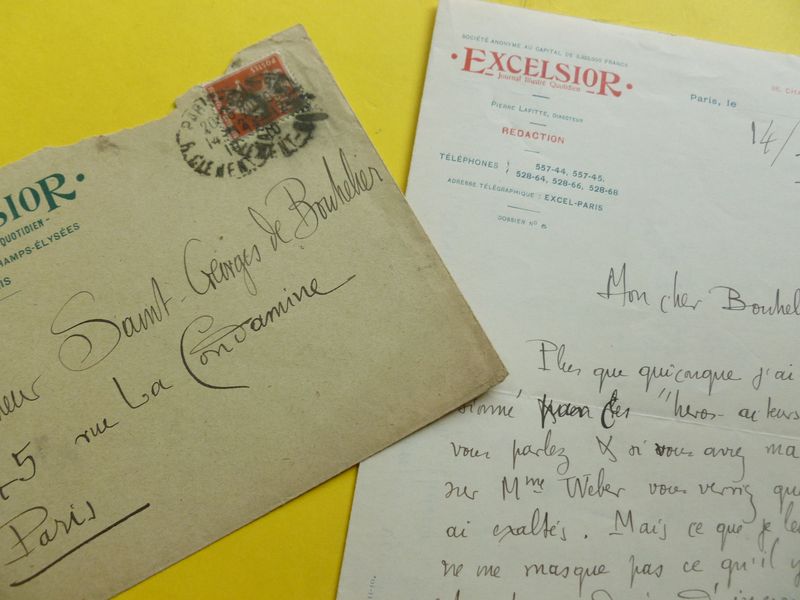 SIOR.
QUOTIDIEN -
CHAMPS-ÉLYSÉES
IS
Saint-Georges de Bouhelier
5 rue La Condamine
Paris
SOCIÉTÉ ANONYME AU CAPITAL DE FRANCS
· EXCELSIOR ·
Journal Illustré Quotidien
PIERRE LAFITTE, DIRECTEUR
REDACTION
TÉLÉPHONES 557-44, 557-45,
528-64, 528-66, 528-68
ADRESSE TÉLÉGRAPHIQUE : EXCEL-PARIS
DOSSIER No 6
Paris, le
14/
Mon cher Bouhel
Plus que quiconque j'ai
sionné les "héros-acteurs
vous parlez & si vous avez
sur Mme Weber vous verrez que
ai exaltés. Mais ce que je
ne me masque pas ce qu'il y